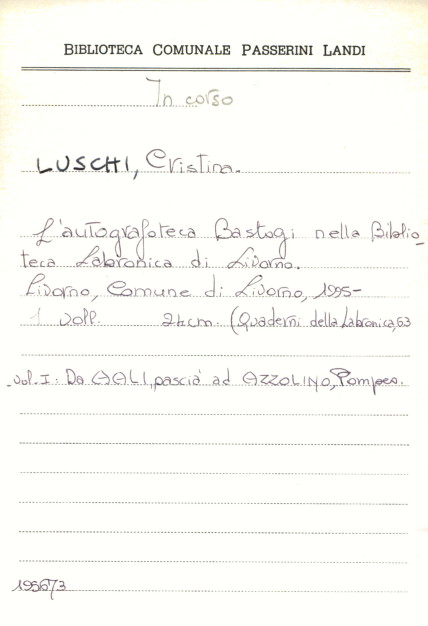 BIBLIOTECA COMUNALE PASSERINI LANDI
In corso
LUSCHI, Cristina.
L'autografoteca Bastogi nella Biblio-
teca Labronica di Livorno.
Livorno, Comune di Livorno, 1995-
1 voll. 24cm. (Quaderni della Labronica, 63
vol. I: Da AALI, pascià ad AZZOLINO, Pompeo.
195673